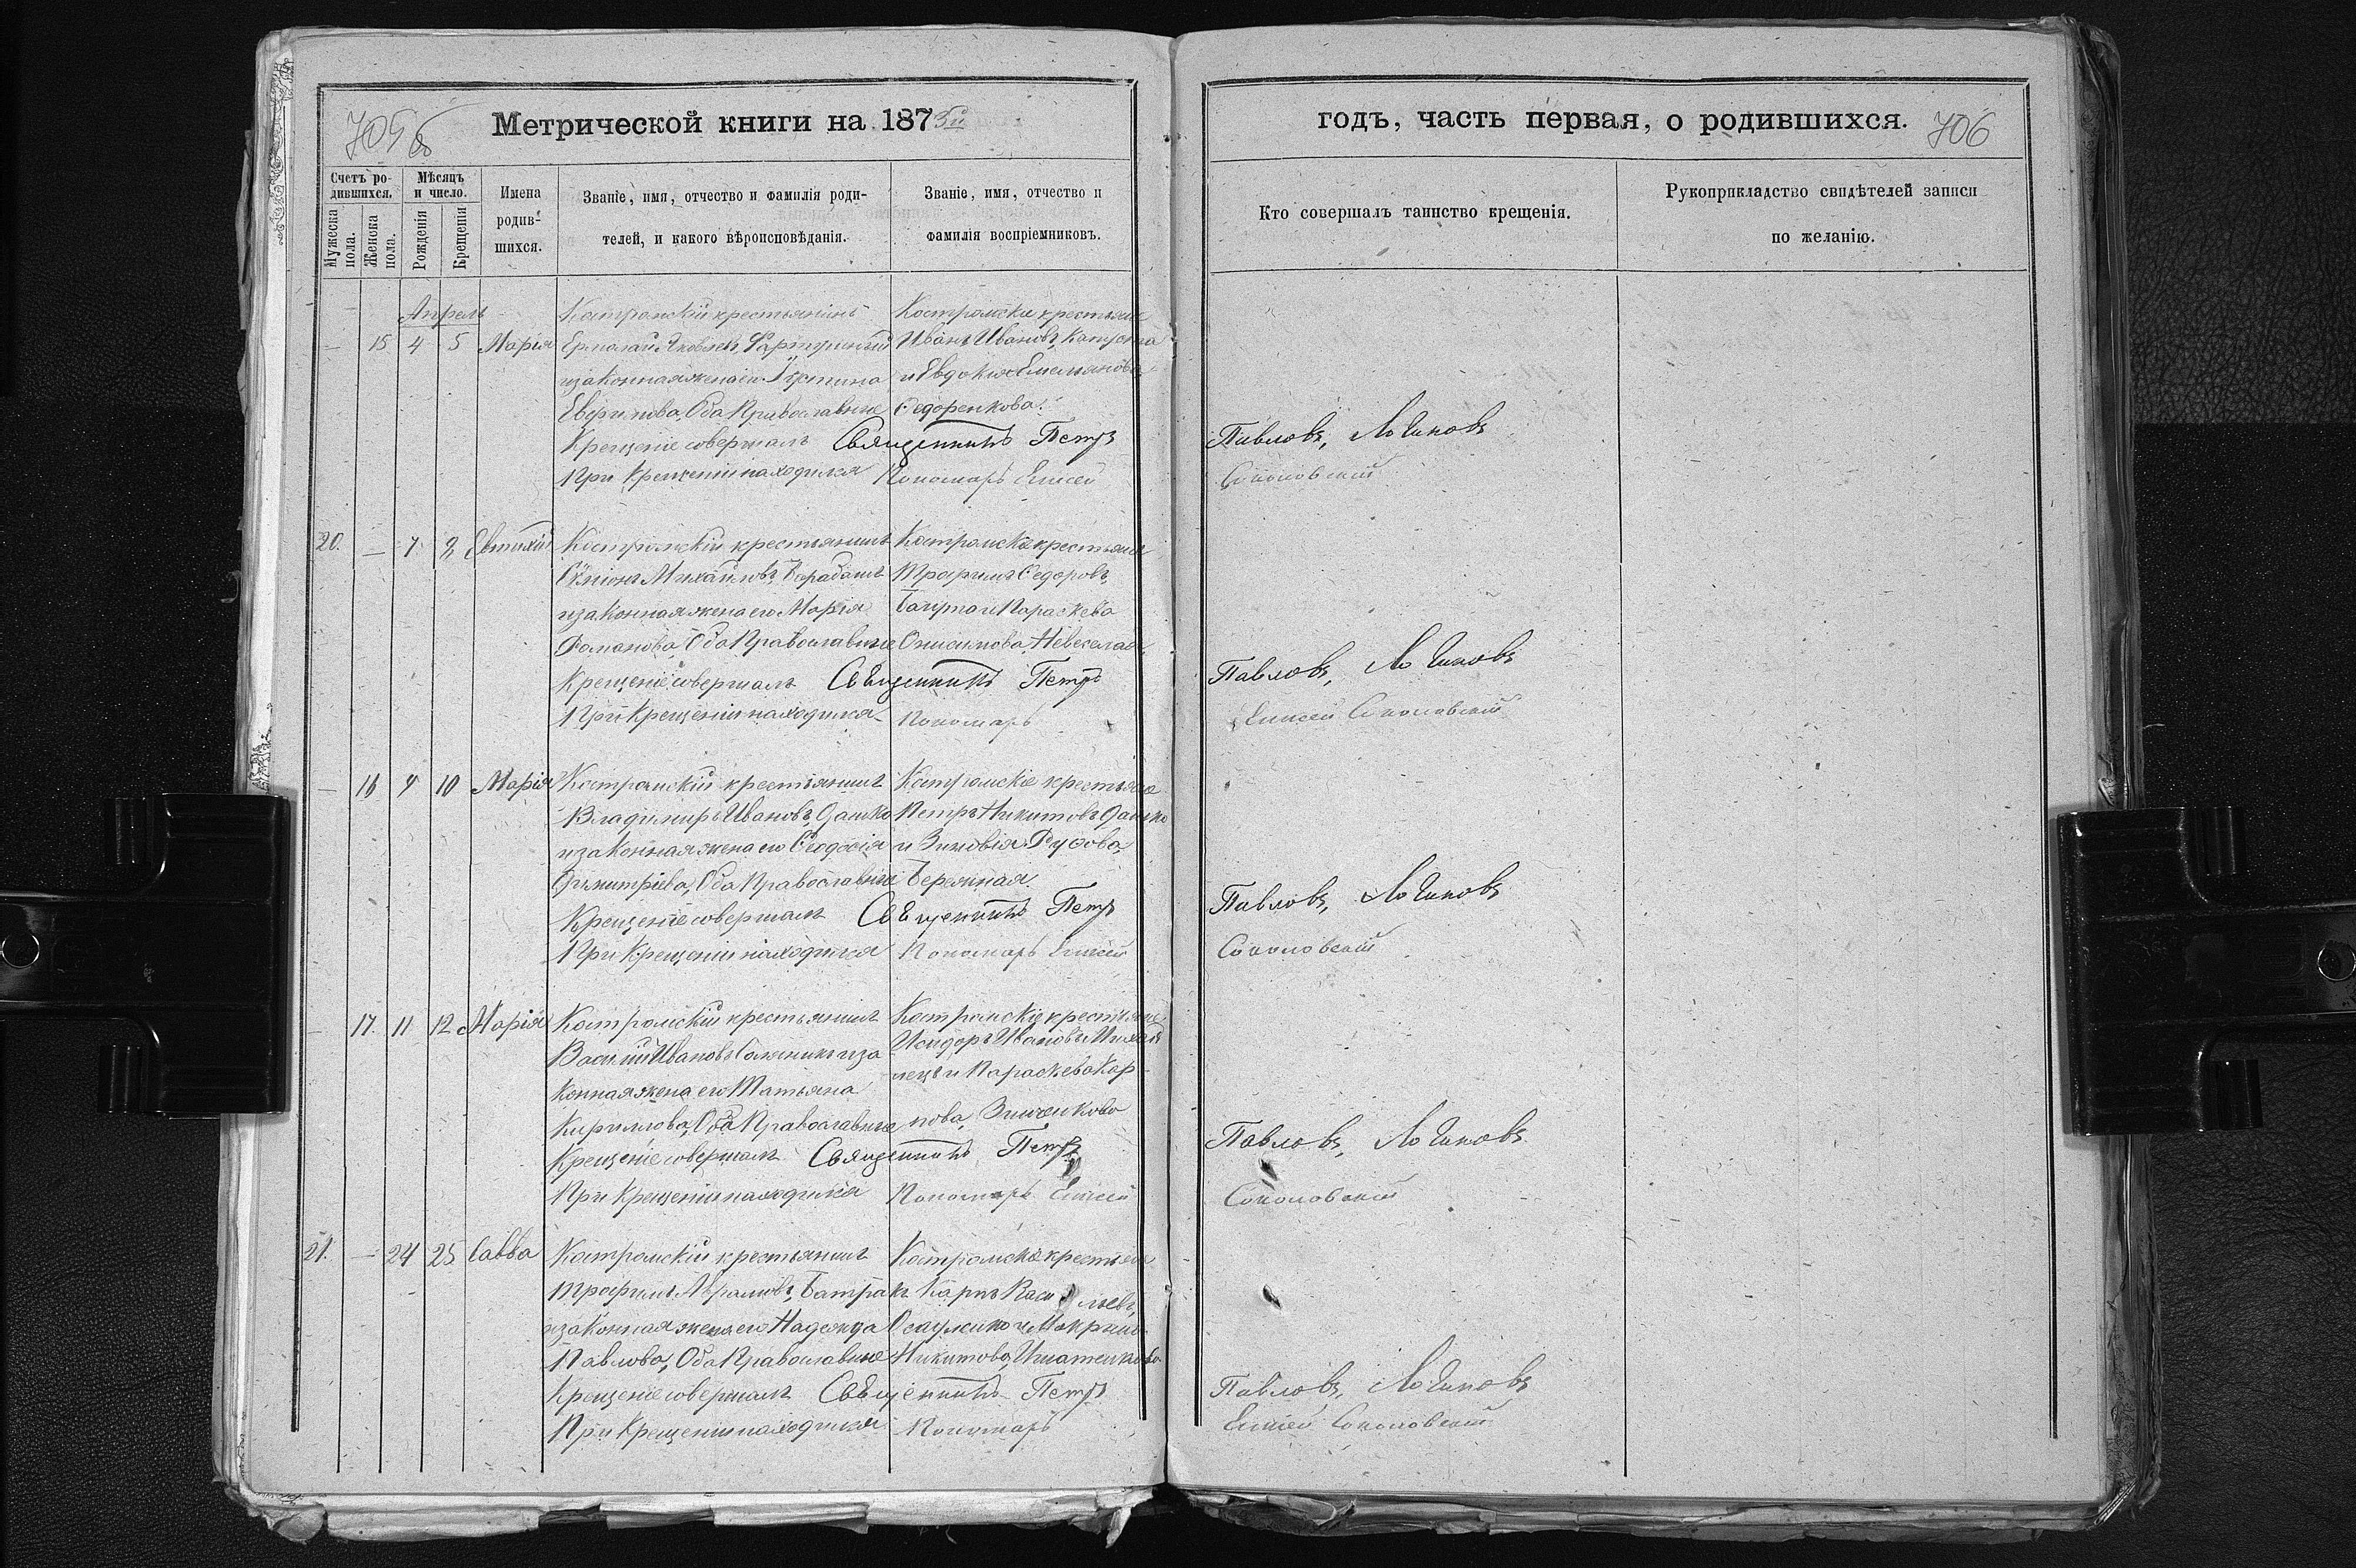 705 об
Метрической книги на 1873й
годъ, часть первая, о родившихся.
706
Счетъ ро-
дившихся.
Мужеска пола.
Женска пола.
Мѣсяцъ
и число.
Рожденія
Крещенія
Имена
родив-
шихся.
Званіе, имя, отчество и фамилія роди-
телей, и какого вѣроисповѣданія.
Званіе, имя, отчество и
фамилія воспріемниковъ.
Кто совершалъ таинство крещенія.
Рукоприкладство свидѣтелей записи
по желанію.
Апрель
— 15 4 5 Марія
Костромскій крестьянинъ
Ермолай Яковлевъ
и законная жена его Іустина
Оба Православные
Костромскіе крестьяне
Иванъ Ивановъ
и Евдокія Емельянова
Федоренкова.
Крещеніе совершалъ Священникъ Петръ Павловъ, Логиновъ
При Крещеніи находился Пономарь Елисей Соколовскій
20. — 7 Евтихій
Костромскій крестьянинъ
Симіонъ Михайловъ, Барабашъ
и законная жена его Марія
Романова, Оба Православные
Костромскіе крестьяне
Трофимъ Федоровъ,
и Параскева
Онисимова,
Крещеніе совершалъ Священникъ Петръ Павловъ, Логиновъ
При Крещеніи находился Пономарь Елисей Соколовскій
— 16 9 10 Марія
Костромскій крестьянинъ
Владимиръ Ивановъ, Дашко
и законная жена его Феодосія
Димитріева, Оба Православные
Костромскіе крестьяне
Петръ Никитовъ Дашко
и Зиновія
Бережная.
Крещеніе совершалъ Священникъ Петръ Павловъ, Логиновъ
При Крещеніи находился Пономарь Елисей Соколовскій
— 17. 11 12 Марія
Костромскій крестьянинъ
Василій Ивановъ и за
конная жена его Татьяна
Кириллова, Оба Православные
Костромскіе крестьяне
Исидоръ Ивановъ Михай
лецъ и Параскева Кар
пова, Зинченкова
Крещеніе совершалъ Священникъ Петръ Павловъ, Логиновъ
При Крещеніи находился Пономарь Елисей Соколовскій
21. — 24 25 Савва
Костромскій крестьянинъ
Трофимъ Абрамовъ, Батракъ
и законная жена его Надежда
Павлова, Оба Православные
Костромскіе крестьяне
Карпъ Васильевъ,
Осауленко и Макрина
Никитова, Игнатенкова
Крещеніе совершалъ Священникъ Петръ Павловъ, Логиновъ
При Крещеніи находился Пономарь Елисей Соколовскій